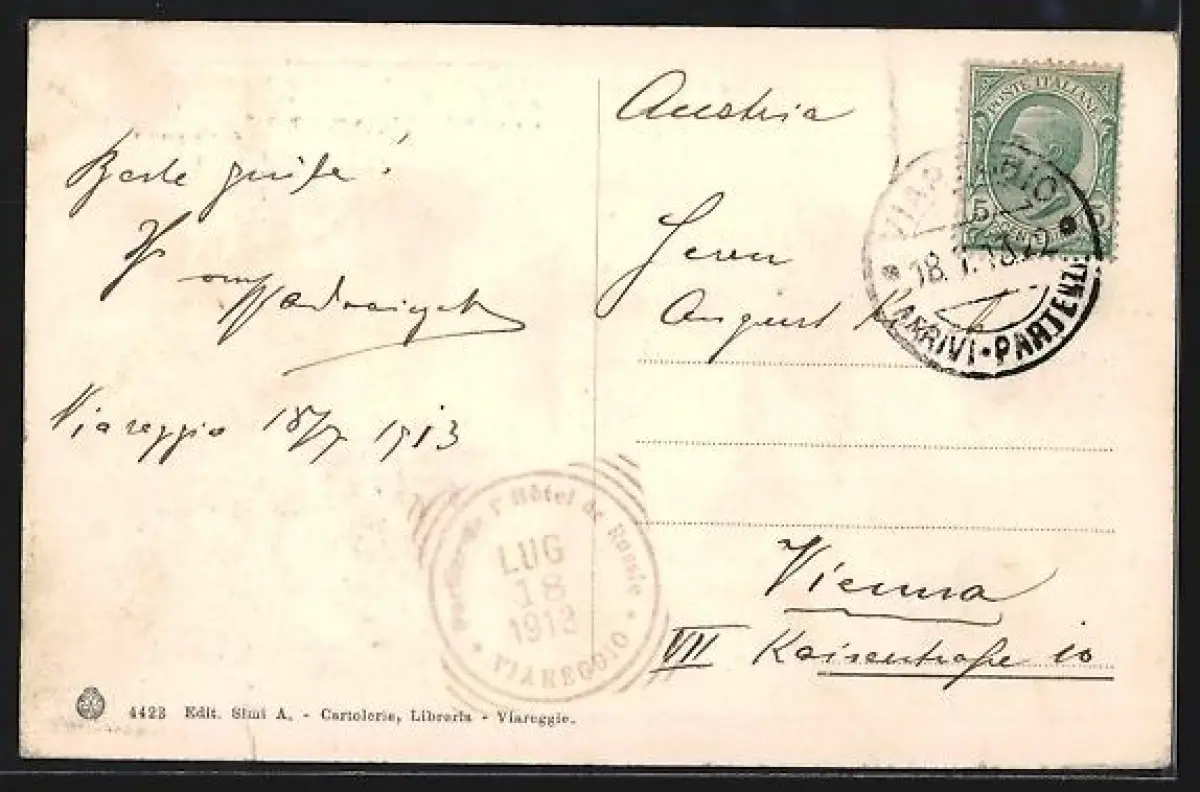 Beste Grüße!
Viareggio 18/7 1913
4423 Edit. Simi A. - Cartoleria, Libreria - Viareggio.
Austria
Herrn
August
Vienna
VII Kaiserstraße 10
POSTE ITALIANE
5 5
VIAREGGIO
18.7.13.22
ARRIVI-PARTENZE
l'Hôtel de Russie
LUG
18
1913
VIAREGGIO